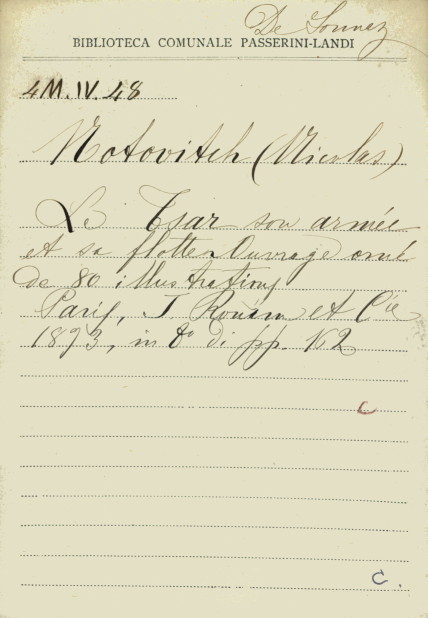 De Sonnez
BIBLIOTECA COMUNALE PASSERINI-LANDI
4M.IV.48
Notovitch (Nicolas)
Le Tsar son armée
et sa flotte. Ouvrage orné
de 80 illustrations
Paris, J. Rouam et Cie
1893, in 8º di pp. 162
C
C.